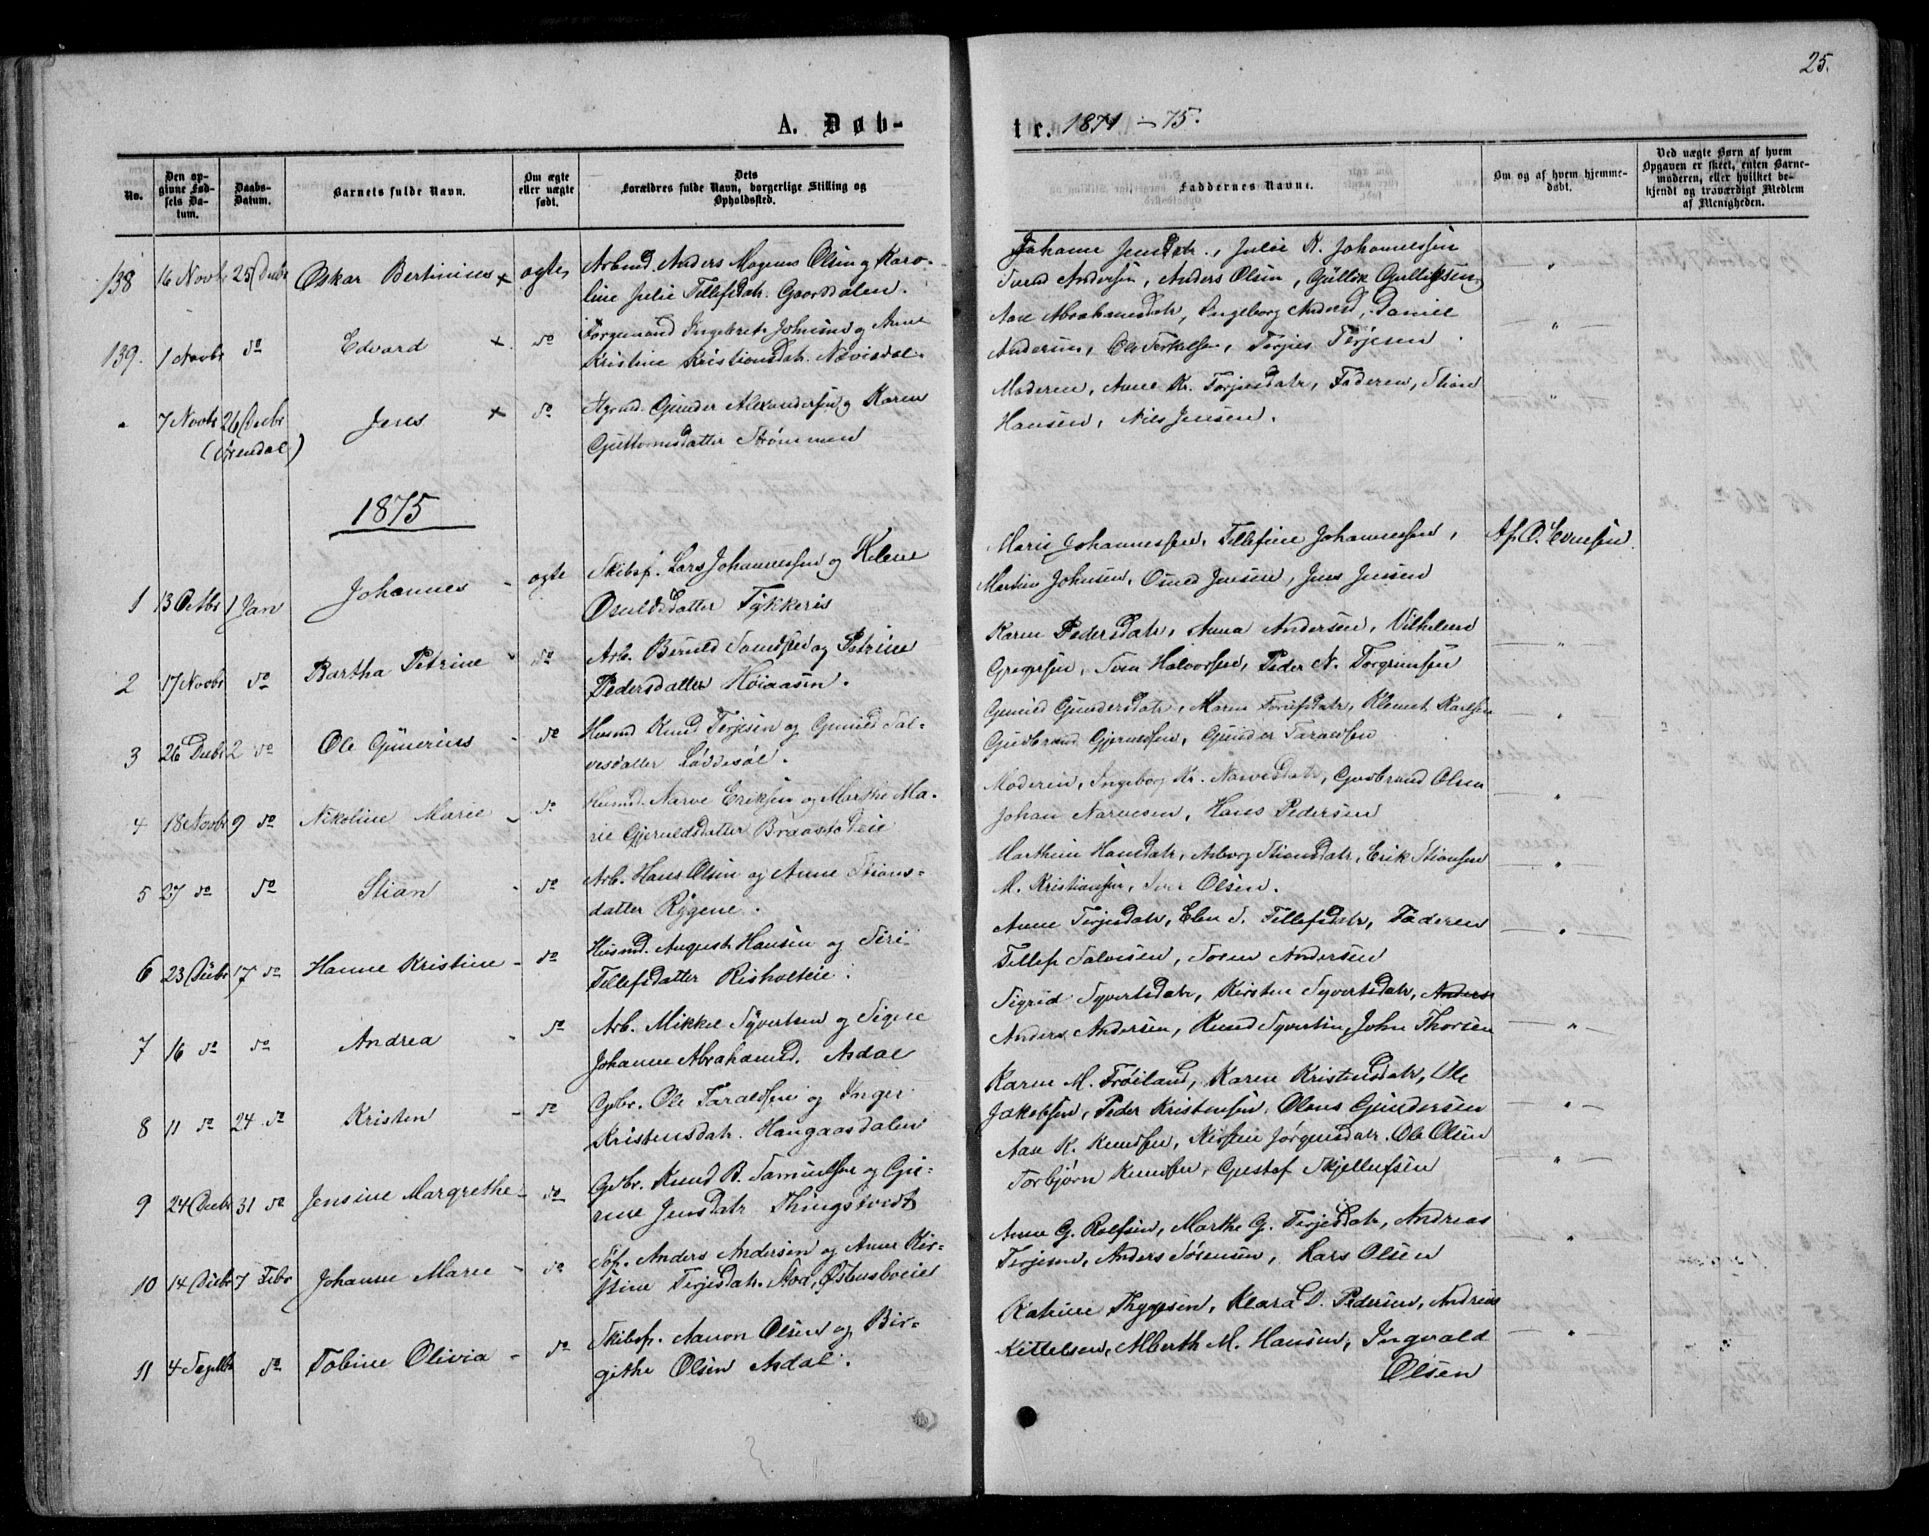 25.
A. Døb-
te. 1874-75.
No.
Den op-
givne Fød-
sels Da-
tum.
Daabs-
Datum.
Barnets fulde Navn.
Om ægte
eller uægte
født.
Dets
Forældres fulde Navn, borgerlige Stilling og
Opholdssted.
Faddernes Navne.
Om og af hvem hjemme-
døbt.
Ved uægte Børn af hvem
Opgaven er skeet, enten Barne-
moderen, eller hvilket be-
kjendt og troværdigt Medlem
af Menigheden.
138 16 Novbr 25 Decbr Oskar Bertinius + ægte Arbmd. Anders Magnus Olsen og Karo-
line Julie Tellefsdatr. Gaarddalen.
Johanne Jensdatr., Julie K. Johannessen
Svend Andersen, Anders Olsen, Gullik Gulliksen
139. 1 Novbr do Edvard + do Ingebret Johnsen og Anne
Kristine Kristiansdatr.
Aase Abrahamsdatr, Ingeborg Andersd, Daniel
Andersen, Ole Terkelsen, Terjes Terjesen
" 7 Novbr 26 Decbr Jens + do Gunder Alexandersen og Karen
(Arendal) Guttormsdatter Strømmen
Moderen, Anne Kr. Torjusdatr, Faderen, Stian
Hansen, Nils Jensen.
1875
1 13 Octbr 1 Jan Johannes - ægte Skibsf. Lars Johannessen og Helene
Osuldsdatter
Marie Johannessen, Tellefine Johannessen, Af O. Evensen
Martin Johnsen, Osuld Jensen, Jens Jensen
2 17 Novbr do Bartha Petrine - do Arb. og Petrine
Pedersdatter Høiaasen.
Karen Pedersdatr, Anna Andersen, Vilhelm
Gregersen, Sven Halvorsen, Peder N. Torgrimsen
3 26 Decbr 2 do Ole Gunerius - do Husmd Knud Terjesen og Gunild Sal-
vesdatter Løddesøl.
Gunild Gundersdatr, Maren Knudsdatr, Klemet Karlsen
Gudbrand Gjeruldsen, Gunder Taraldsen
4 18 Novbr 9 do Nikoline Marie - do Husmd. Narve Eriksen og Marthe Ma-
rie Gjeruldsdatter Braastadeie
Moderen, Ingeborg Kr. Narvesdatr, Gudbrand Olsen
Johan Narvesen, Hans Pedersen
5 27 do do Stian - do Arb. Hans Olsen og Anne Stians-
datter Rygene.
Marthine Hansdatr, Asborg Stiansdatr, Erik Stiansen
M. Kristiansen, Iver Olsen.
6 23 Decbr 17 do Hanne Kristine - do Husmd. August Hansen og Siri
Tellefsdatter Risholteie.
Anne Terjesdatr, Elen S. Tellefsdatr, Faderen
Tellef Salvesen, Søren Andersen
7 16 do do Andrea - do Arb. Mikkel Syvertsen og Signe
Johanne Abrahamsd. Asdal
Sigrid Syvertsdatr, Kirsten Syvertsdatr, Anders
Anders Andersen, Knud Syvertsen, John Thorsen
8 11 do 24 do Kristen - do Gbr. Ole Taraldsen og Inger
Kristensdatr. Haugaasdalen
Karen M. Frøiland, Karen Kristensdatr, Ole
Jakobsen, Peder Kristensen, Olaus Gundersen
9 24 Decbr 31 do Jensine Margrethe - do Gbr. Knud B. Samuelsen og Gu-
rine Jensdatr. Thingstvedt
Aase K. Knudsen, Kirsten Jørgensdatr. Ole Olsen
Torbjørn Knudsen, Gustof Skjellufsen
10 14 Decbr 7 Febr Johanne Marie - do Søf. Anders Andersen og Anne Kir-
stine Terjesdatr.
Anne G. Rolfsen, Marthe G. Terjesdatr, Andreas
Terjesen, Anders Sørensen, Lars Olsen
11 4 Septbr do Tobine Olivia - do Skibsf. Aanon Olsen og Bir-
githe Olsen Asdal.
Katrine Thygesen, Klara D. Pedersen, Andreas
Kittelsen, Alberth M. Hansen, Ingvald
Olsen